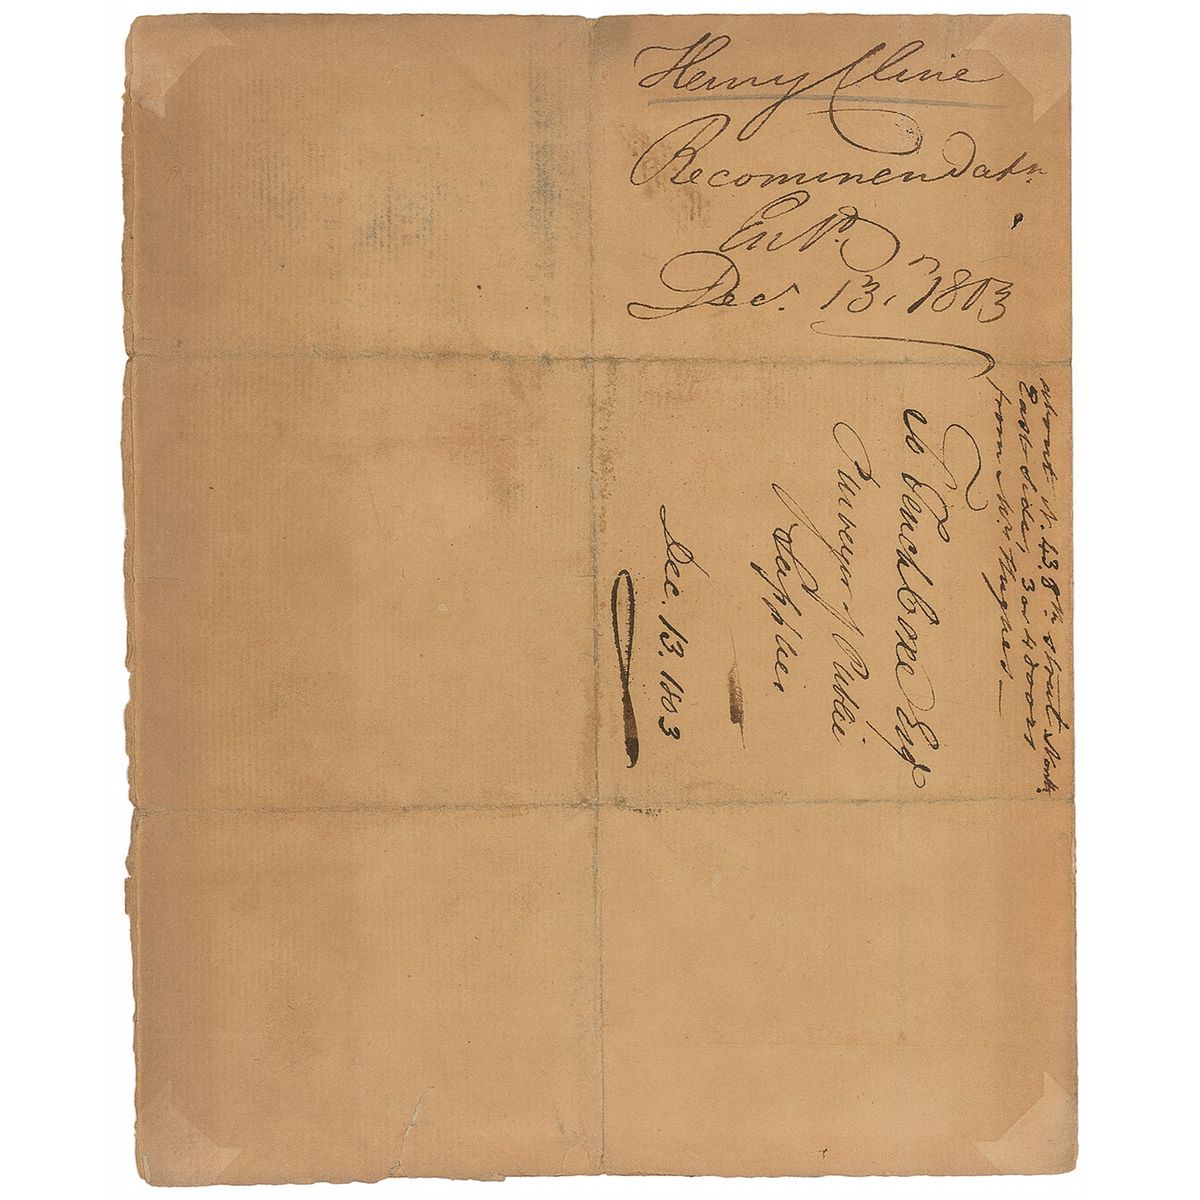 Henry Cline
Recommendatn.
Dec. 13, 1803
about N. 43. 8th street North
East side, 3 or 4 doors
from Mr Hughes —
To Tench Coxe Esq
Purveyor of Public
Supplies
Dec. 13. 1803